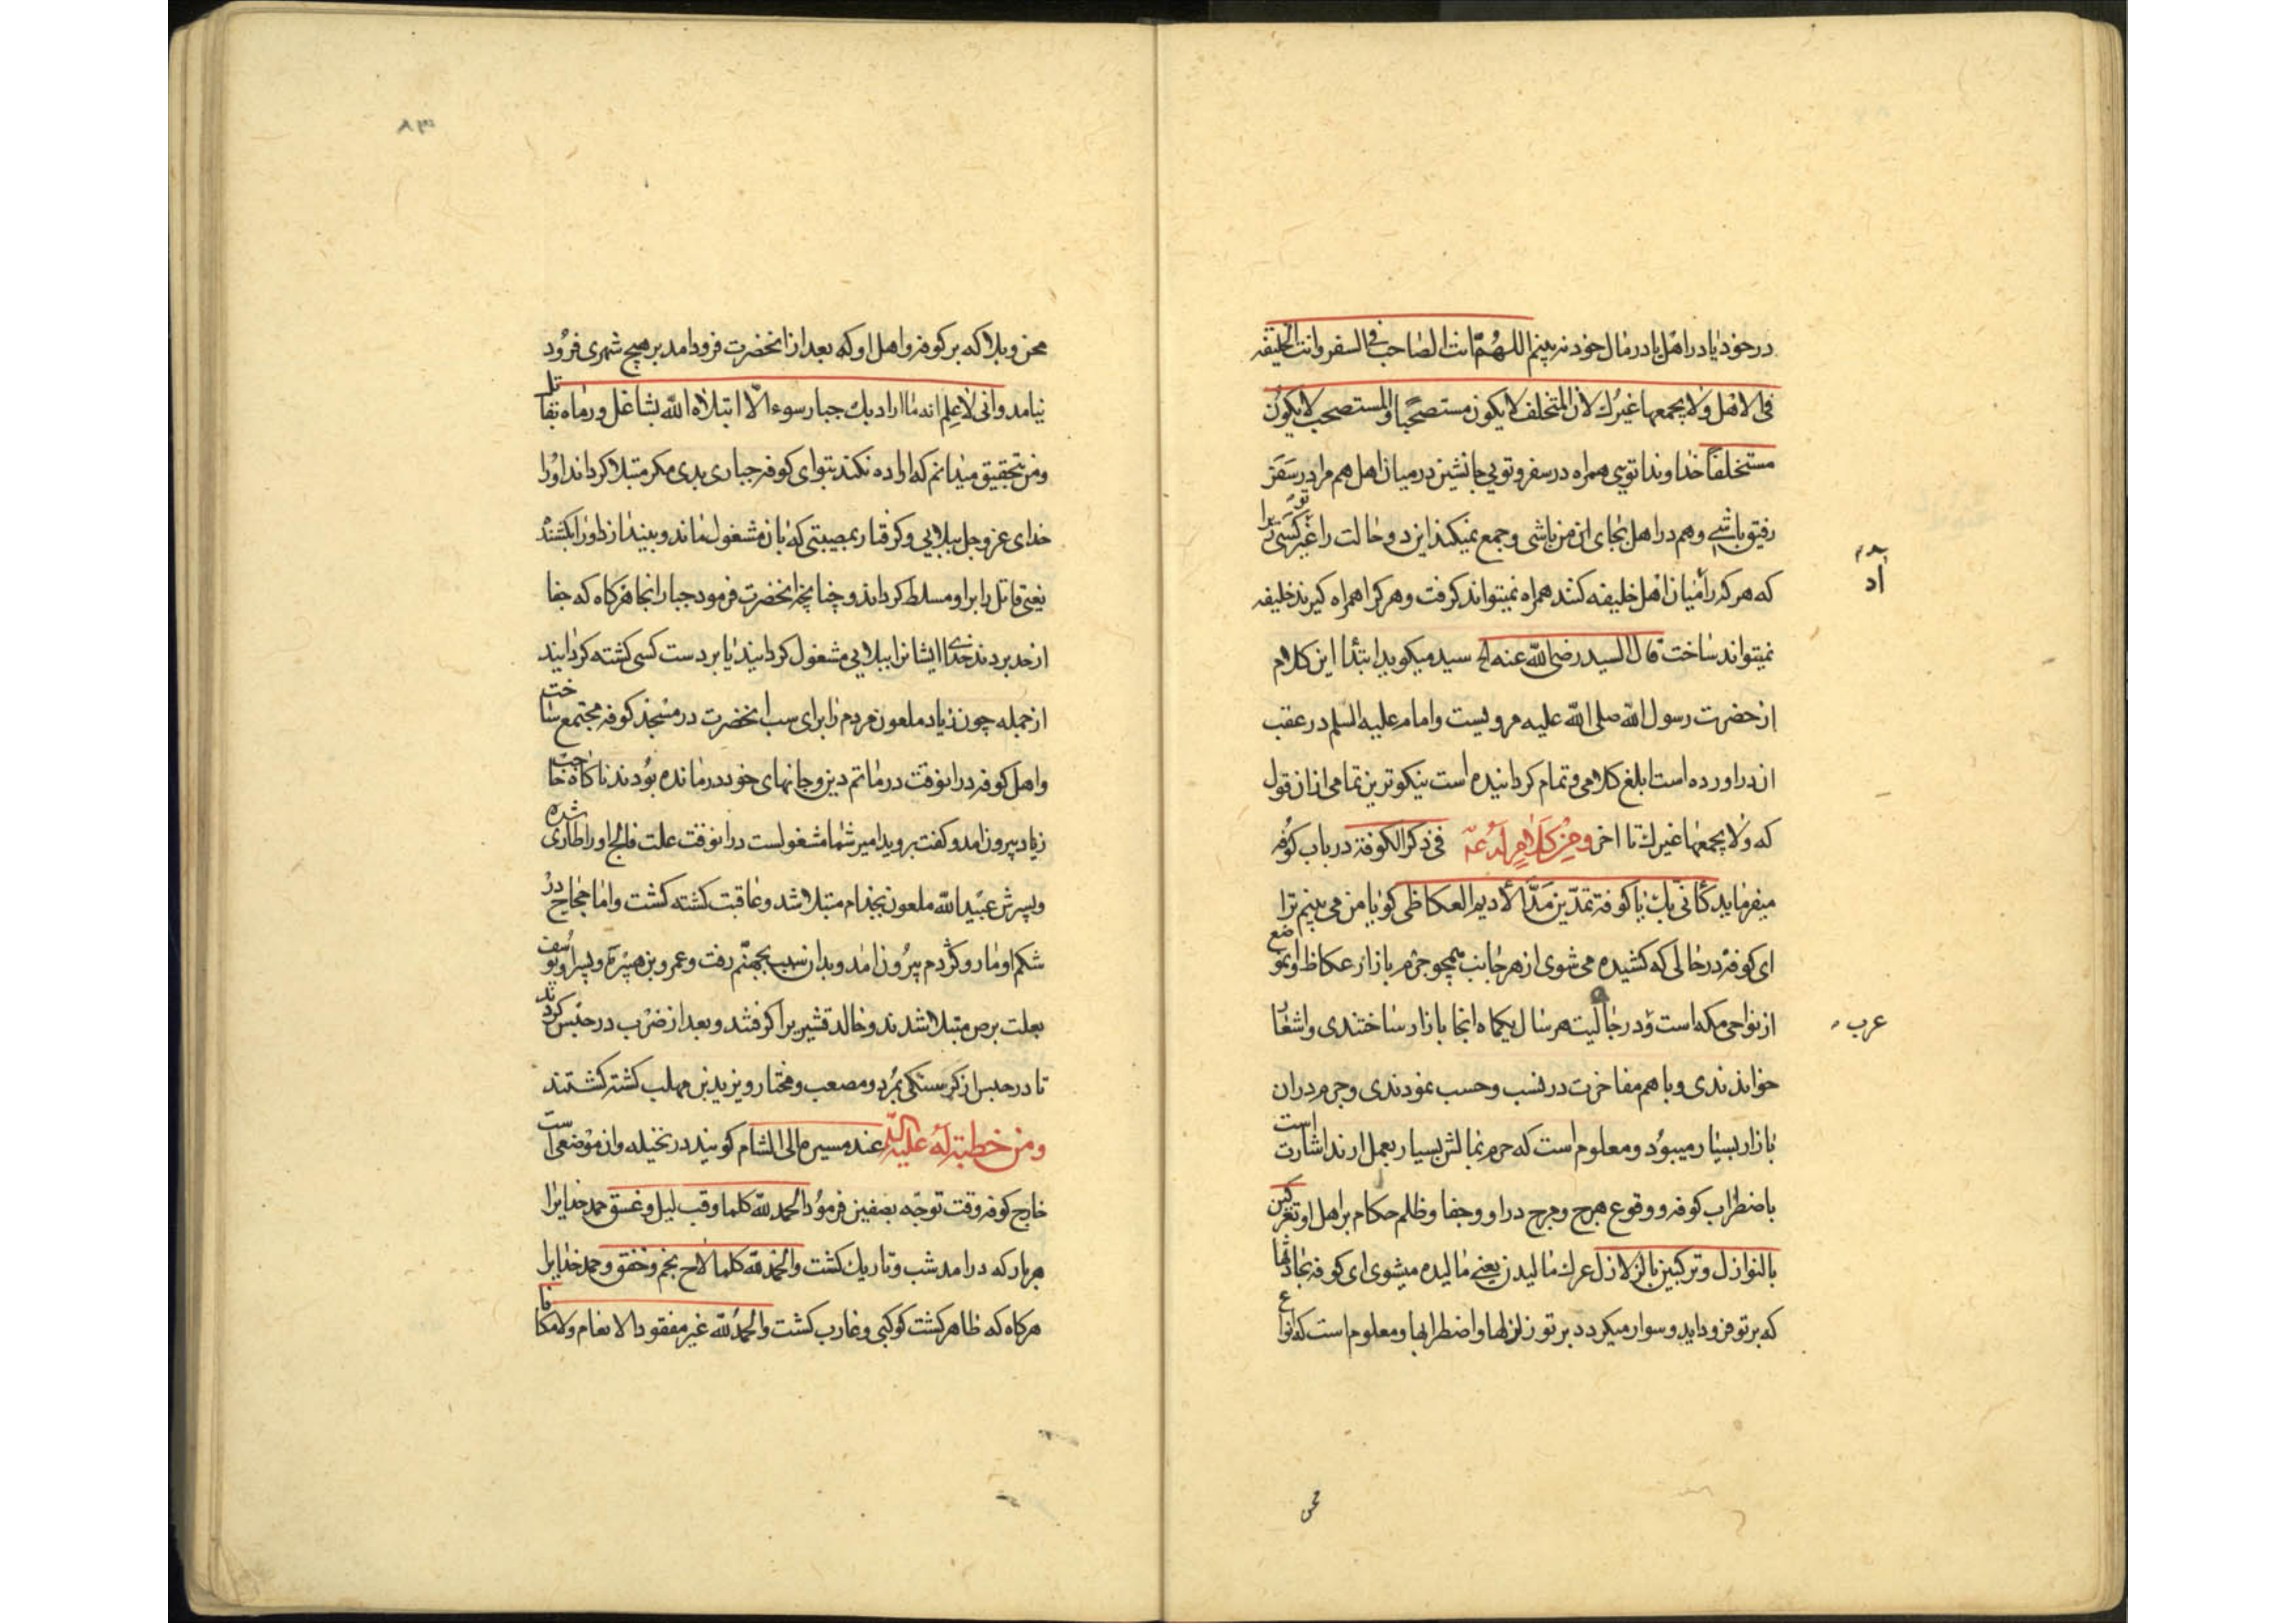 در خود یا در اهل یا در مال خود نه بینم اللهم انت الصاحب فی السفر وانت الخلیفه
فی الاهل ولا یجمعها غیرک لان المتخلف لا یکون مستصحبا والمستصحب لا یکون
مستخلفا خداوندا تویی همراه در سفر و تویی جانشین در میان اهل هم مرا در سفر
رفیق باشی و هم در اهل بجای من باشی و جمع نمیکند این دو حالت را غیر تو کسی زیرا
که هر که را میان اهل خلیفه کنند همراه نمیتواند گرفت و هر کرا همراه گیرند خلیفه
نمیتواند ساخت قال السید رضی الله عنه الخ سید میکوید ابتدا این کلام
از حضرت رسول الله صلی الله علیه مرویست و امام علیه السلم در عقب
ان در اورده است ابلغ کلامی و تمام کردانیده است نیکوترین تمامی از ان قول
که ولا یجمعها غیرک تا اخر ومن کلام له ع‍ فی ذکر الکوفة در باب کوفه
میفرماید کانی بک یا کوفة تمدین مد الادیم العکاظی کویا من می بینم ترا
ای کوفه در حالی که کشیده می شوی از هر جانب همچو جرم بازار عکاظ او موضع
از نواحی مکه است و در جاهلیت هر سال یکماه انجا بازار ساختندی و اشعار
خواندندی و با هم مفاخرت در نسب و حسب نمودندی و جرم در ان
بازار بسیار میبود و معلوم است که جرم بمالش بسیار بعمل ارند اشارت است
باضطراب کوفه و وقوع هرج و مرج در او و جفا و ظلم حکام بر اهل او تعرکین
بالنوازل و ترکبین بالزلازل عرک مالیدن یعنی مالیده میشوی ای کوفه بحادثها
که بر تو فرود اید و سوار میکردد بر تو زلزلها و اضطرابها و معلوم است که انواع
عرب
محن
محن و بلا که بر کوفه و اهل او که بعد از انحضرت فرود امد بر هیچ شهری فرود
نیامد وانی لاعلم انه ما اراد بک جبار سوء الا ابتلاه الله بشاغل ورماه بقاتل
و من بتحقیق میدانم که اراده نکند بتو ای کوفه جباری بدی مکر مبتلا کرداند او را
خدای عز و جل ببلایی و کرفتار بمصیبتی که بان مشغول ماند و بیندازد او را بکشنده
یعنی قاتل را بر او مسلط کرداند و چنانچه انحضرت فرمود جباران انجا هرکاه که جفا
از حد بردند خدای ایشانرا ببلایی مشغول کردانید یا بر دست کسی کشته کردانید
از جمله چون زیاد ملعون مردم را برای سب انحضرت در مسجد کوفه مجتمع ساخت
و اهل کوفه در انوقت در ماتم دین و جانهای خود درمانده بودند ناکاه حاجب
زیاد بیرون امد و کفت بروید امیر شما مشغولست در انوقت علت فالج او را طاری شده
و پسرش عبیدالله ملعون بجذام مبتلا شد و عاقبت کشته کشت و اما حجاج در
شکم او مار و کژدم بیرون امد و بدان سبب بجهنم رفت و عمرو بن هبیره و پسر او یوسف
بعلت برص مبتلا شدند و خالد قشیری را کرفتند و بعد از ضرب در حبس کردند
تا در حبس از کرسنکی بمرد و مصعب و مختار و یزید بن مهلب کشته کشتند
ومن خطبة له علیه السلم عند مسیره الی الشام کویند در نخیله و ان موضعی است
خارج کوفه وقت توجه بصفین فرمود الحمد لله کلما وقب لیل و غسق حمد خدایرا
هر بار که در امد شب و تاریک کشت والحمد لله کلما لاح نجم وخفق و حمد خدایرا
هرکاه که ظاهر کشت کوکبی و غارب کشت والحمد لله غیر مفقود الانعام ولا مکافا